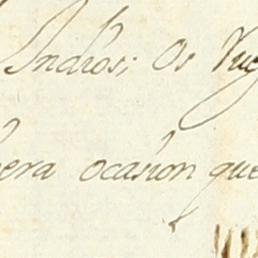 Indios; Os rue
era ocasion que